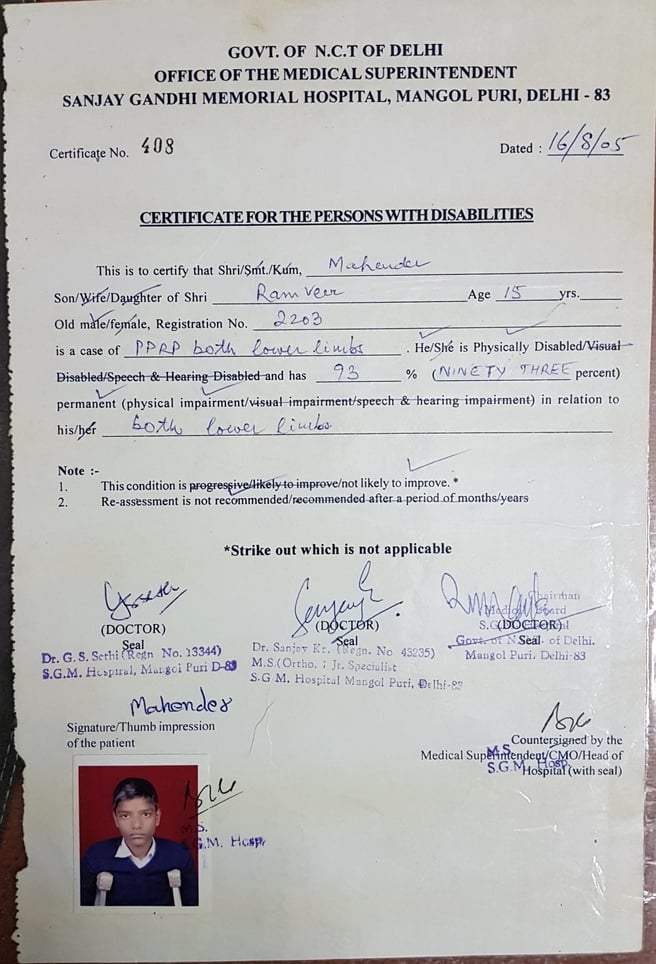 GOVT. OF N.C.T OF DELHI
OFFICE OF THE MEDICAL SUPERINTENDENT
SANJAY GANDHI MEMORIAL HOSPITAL, MANGOL PURI, DELHI - 83
Certificate No. 408 Dated : 16/8/05
CERTIFICATE FOR THE PERSONS WITH DISABILITIES
This is to certify that Shri/Smt./Kum, Mahender
Son/Wife/Daughter of Shri Ram Veer Age 15 yrs.
Old male/female, Registration No. 2203
is a case of PPRP both lower limbs . He/She is Physically Disabled/Visual
Disabled/Speech & Hearing Disabled and has 93 % (NINETY THREE percent)
permanent (physical impairment/visual impairment/speech & hearing impairment) in relation to
his/her both lower limbs
Note :-
1. This condition is progressive/likely to improve/not likely to improve. *
2. Re-assessment is not recommended/recommended after a period of months/years
*Strike out which is not applicable
(DOCTOR) (DOCTOR) (DOCTOR)
Seal Seal Seal
Chairman
Medical Board
Govt. of N. of Delhi.
Mangol Puri, Delhi-83
Dr. G. S. Sethi (Regn No. 13344)
S.G.M. Hospital, Mangol Puri D-83
Dr. Sanjay Kr. (Regn. No 43235)
M.S.(Ortho.) Jr. Specialist
S.G.M. Hospital Mangol Puri, Delhi-83
Mahender
Signature/Thumb impression
of the patient
Countersigned by the
Medical Superintendent/CMO/Head of
Hospital (with seal)
M.S.
S.G.M. Hosp.
M.S.
S.G.M. Hosp.